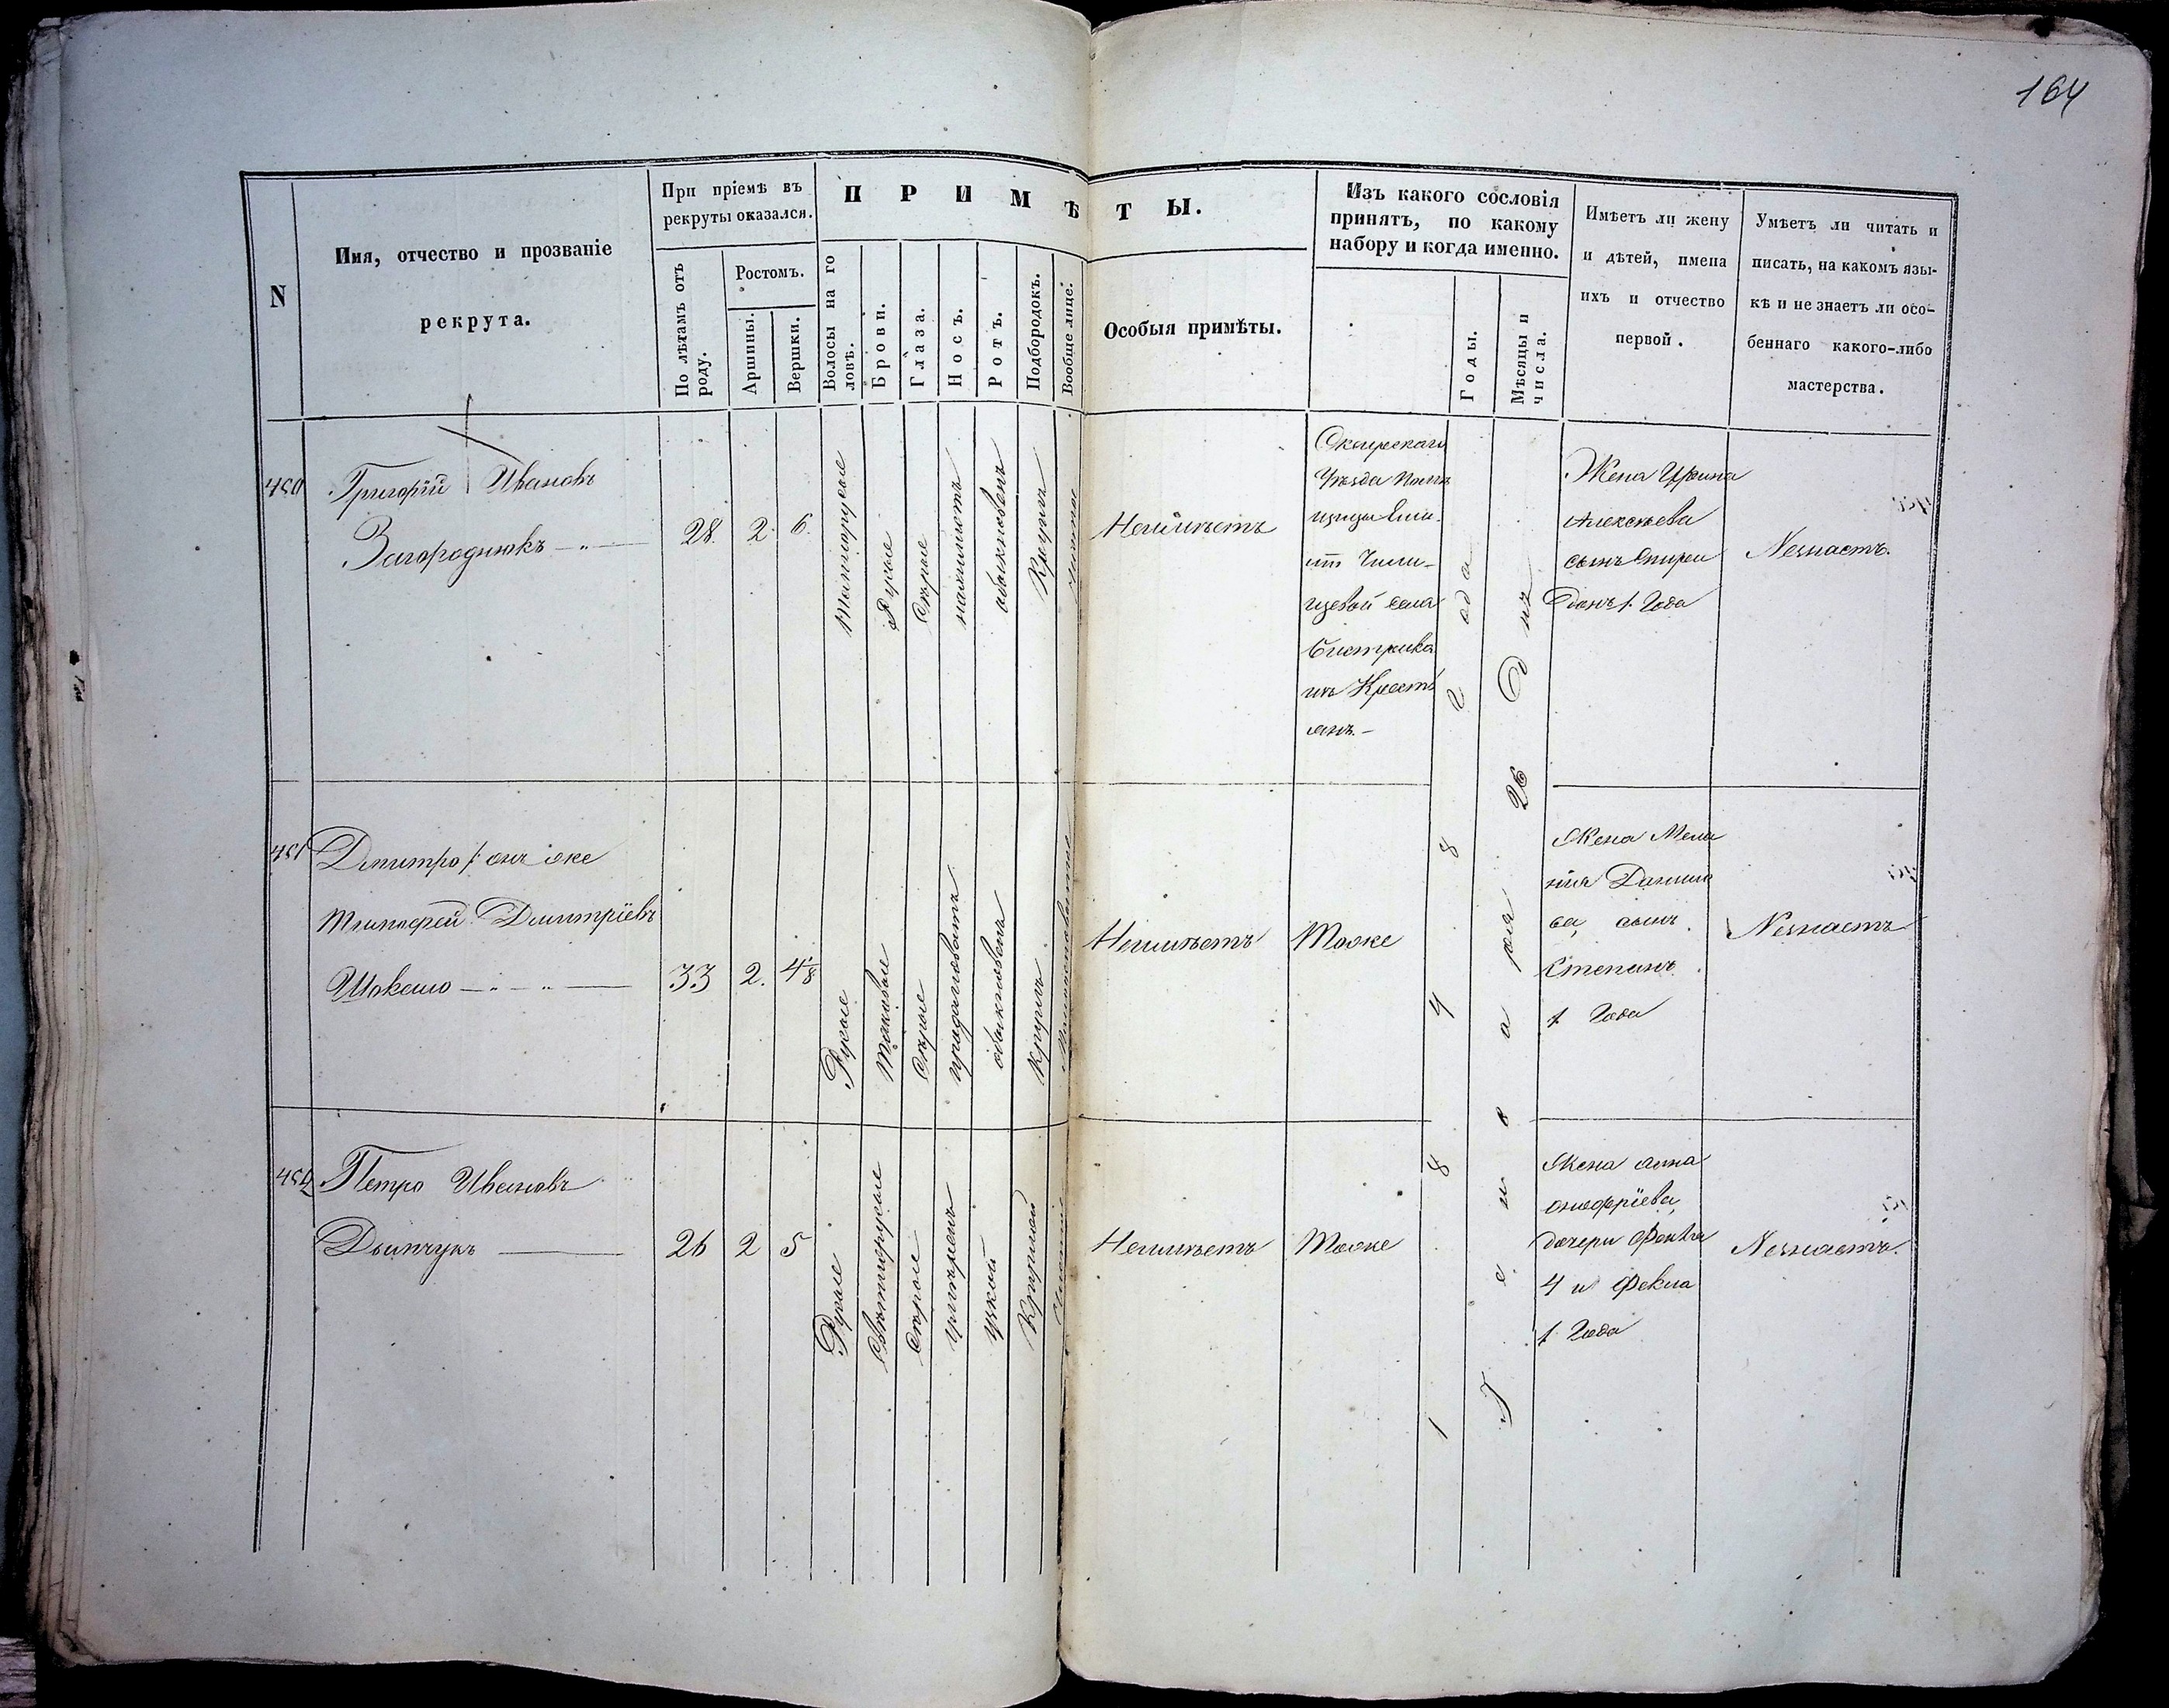 164
N
Имя, отчество и прозваніе
рекрута.
При пріемѣ въ
рекруты оказался.
По лѣтамъ отъ
роду.
Ростомъ.
Аршины.
Вершки.
П Р И М Ѣ Т Ы.
Волосы на го
ловѣ.
Брови.
Глаза.
Носъ.
Ротъ.
Подбородокъ.
Вообще лице.
Особыя примѣты.
Изъ какого сословія
принятъ, по какому
набору и когда именно.
Годы.
Мѣсяцы и
числа.
Имѣетъ ли жену
и дѣтей, имена
ихъ и отчество
первой.
Умѣетъ ли читать и
писать, на какомъ язы-
кѣ и не знаетъ ли осо-
беннаго какого-либо
мастерства.
450
Григорій Ивановъ
Загороднюкъ
28. 2. 6.
Русые
Сѣрые
обыкновенъ
Кругулъ
Неимѣетъ
Сквирскаго
Уѣзда
села
Бистривка
изъ Крестъ
янъ.
1848 года
Генваря 26 Дня
Жена Ирина
Алексѣева
сынъ Спири
донъ 1. Года
Незнаетъ.
451
Дмитро /: онъ же
Тимофей Дмитріевъ
Шокало
33 2. 4 1/8
Русые
Таковые
Сѣрые
продолговатъ
обыкновенъ
Круглъ
Неимѣетъ
Тоже
Жена Мела
нія Данило
ва, сынъ
Степанъ
1 Года
Незнаетъ
452
Петро Ивановъ
Дымчукъ
26 2 5
Русые
Светлорусые
Серые
умѣренъ
узкой
Круглой
Неимѣетъ
Тоже
Жена анна
онофріева,
дочери
4 и Фекла
1 Года
Незнаетъ.